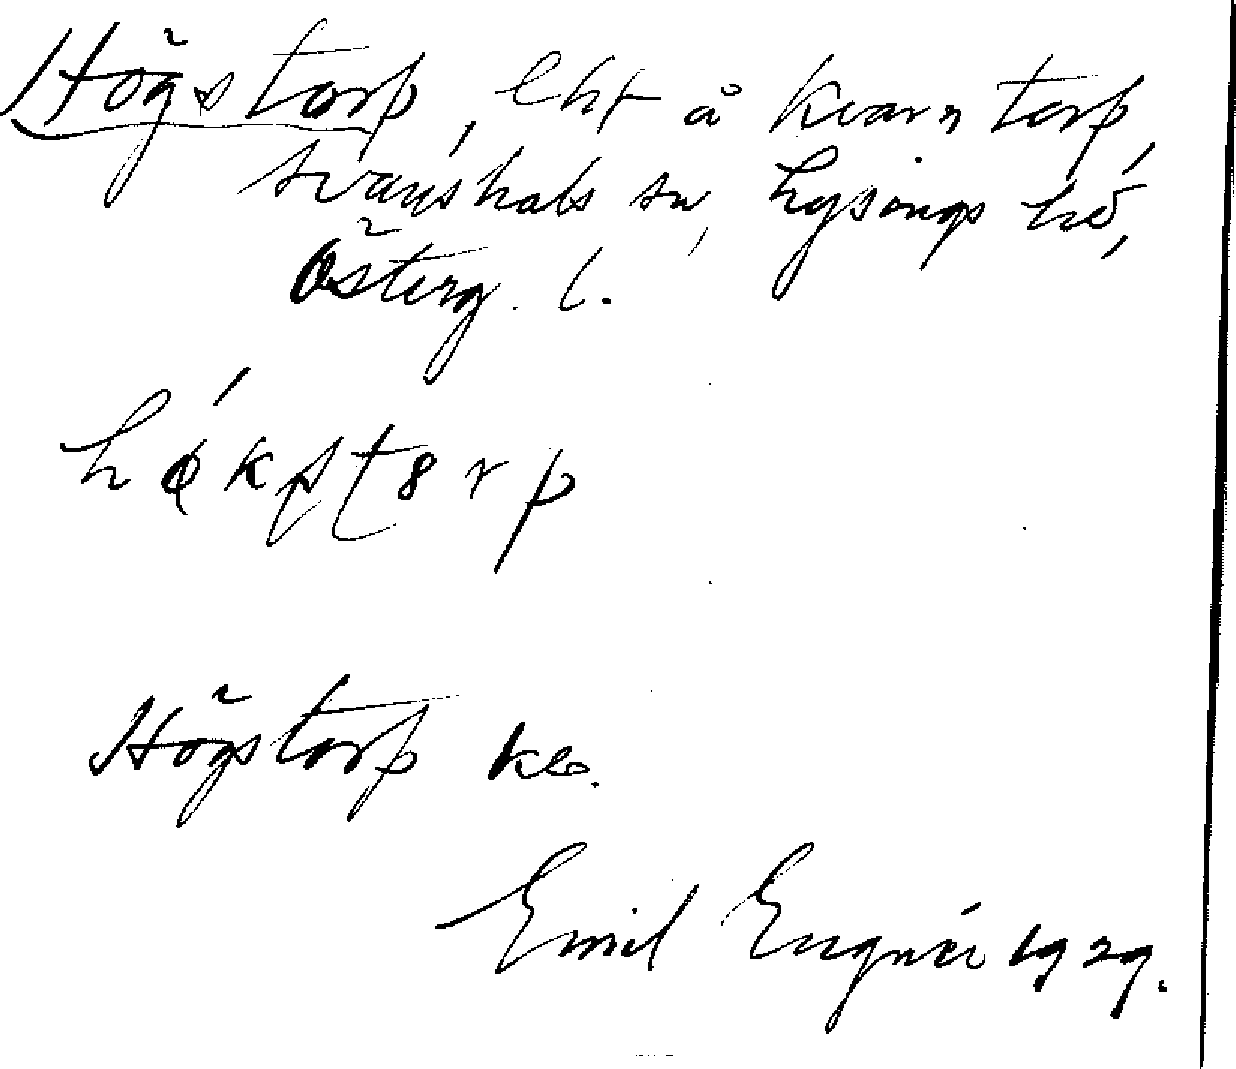 Högstorp, lht å Kvarntorp,
Svanshals sn, Lysings hd,
Österg. l.
hǿkstorp
Högstorp kb.
Emil Engnér 1929.